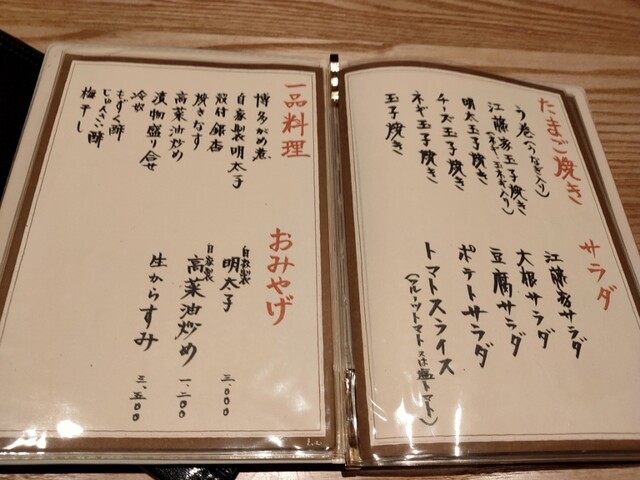 たまご焼き
う巻(うなぎ入り)
江藤家玉子焼き
明太玉子焼き
チーズ玉子焼き
ネギ玉子焼き
玉子焼き
サラダ
江藤家サラダ
大根サラダ
豆腐サラダ
ポテトサラダ
トマトスライス
(フルーツトマト又は塩トマト)
一品料理
博多がめ煮
自家製明太子
殻付銀杏
焼きなす
高菜油炒め
漬物盛り合せ
冷奴
もずく酢
じゅんさい酢
梅干し
おみやげ
自家製
明太子 三、〇〇〇
自家製
高菜油炒め 一、二〇〇
生からすみ 三、五〇〇